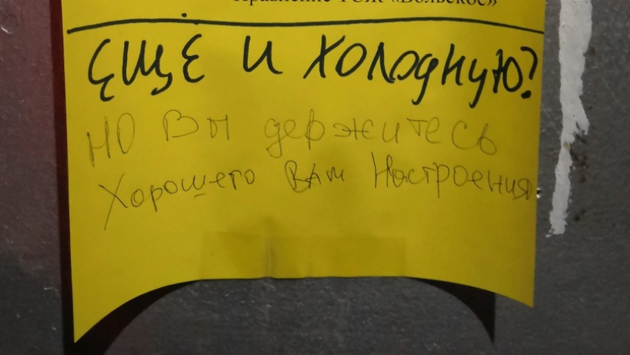 Правление ТСЖ «Вольское»
ЕЩЁ И ХОЛОДНУЮ?
НО ВЫ держитесь
Хорошего ВАМ Настроения